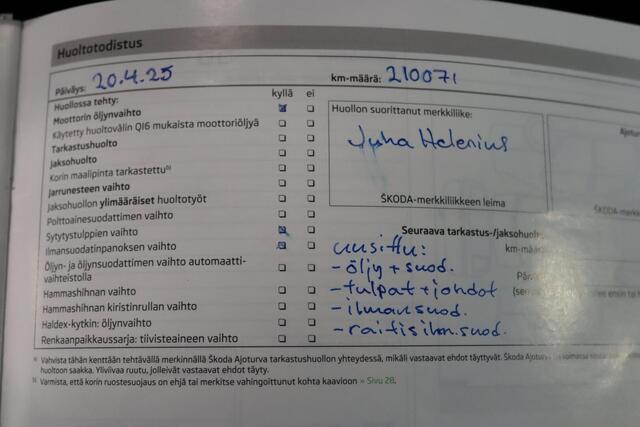 Huoltotodistus
Päiväys: 20.4.25
km-määrä: 210071
Huollossa tehty:
kyllä ei
Moottorin öljynvaihto
Käytetty huoltovälin QI6 mukaista moottoriöljyä
Tarkastushuolto
Jaksohuolto
Korin maalipinta tarkastettu⁵⁾
Jarrunesteen vaihto
Jaksohuollon ylimääräiset huoltotyöt
Polttoainesuodattimen vaihto
Sytytystulppien vaihto
Ilmansuodatinpanoksen vaihto
Öljyn- ja öljynsuodattimen vaihto automaatti-
vaihteistolla
Hammashihnan vaihto
Hammashihnan kiristinrullan vaihto
Haldex-kytkin: öljynvaihto
Renkaanpaikkaussarja: tiivisteaineen vaihto
Huollon suorittanut merkkiliike:
Juha Helenius
ŠKODA-merkkiliikkeen leima
ŠKODA-merk
Seuraava tarkastus-/jaksohuol
km-määr
uusittu:
-öljy+suod.
-tulpat+johdot
-ilmansuod.
-raitisilm.suod.
Vahvista tähän kenttään tehtävällä merkinnällä Škoda Ajoturva tarkastushuollon yhteydessä, mikäli vastaavat ehdot täyttyvät. Škoda Ajoturva
huoltoon saakka. Yliviivaa ruutu, jolleivät vastaavat ehdot täyty.
⁵⁾ Varmista, että korin ruostesuojaus on ehjä tai merkitse vahingoittunut kohta kaavioon » Sivu 28.